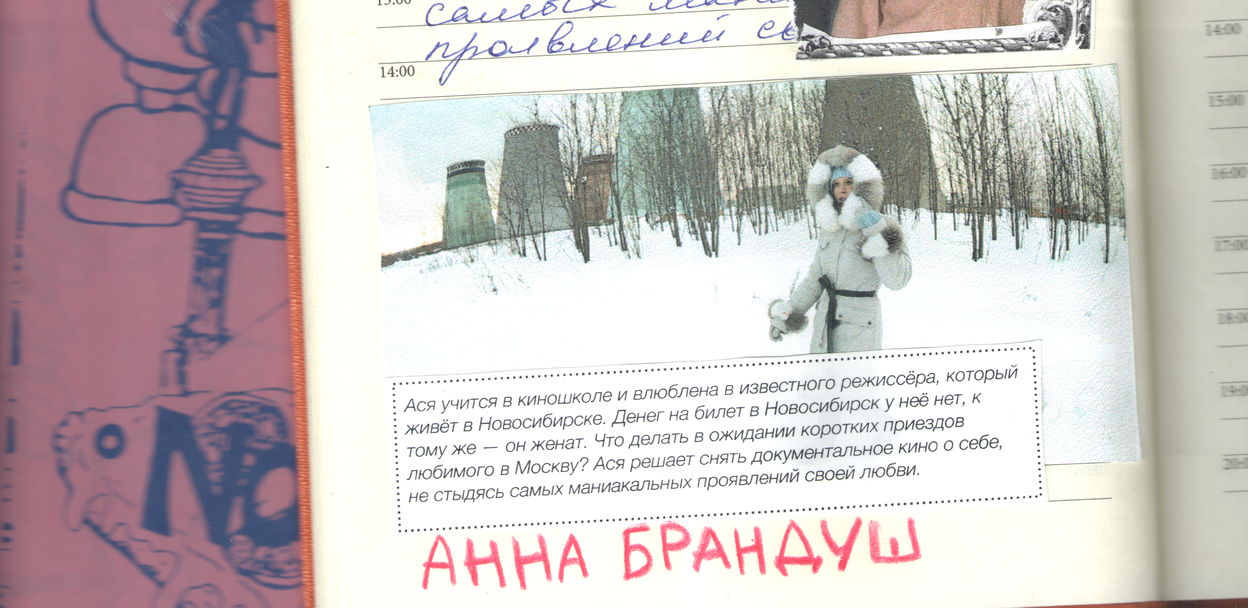 13:00
самых
проявлений
14:00
Ася учится в киношколе и влюблена в известного режиссёра, который
живёт в Новосибирске. Денег на билет в Новосибирск у неё нет, к
тому же — он женат. Что делать в ожидании коротких приездов
любимого в Москву? Ася решает снять документальное кино о себе,
не стыдясь самых маниакальных проявлений своей любви.
АННА БРАНДУШ
14:00
15:00
16:00
17:00
18:00
19:00
20:0